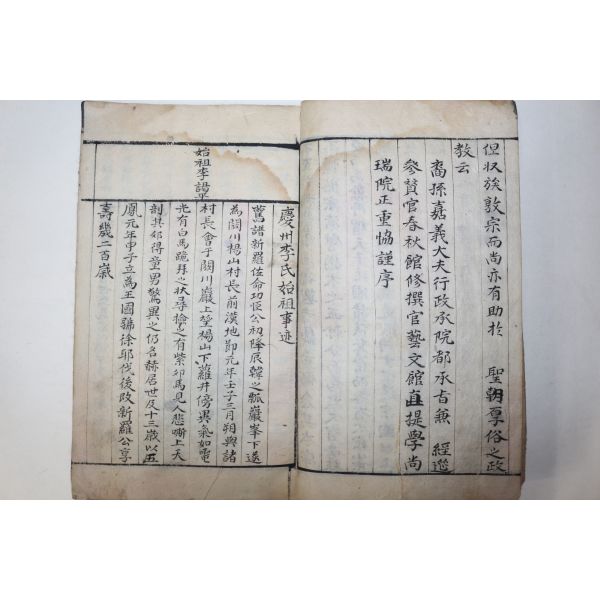 但収族敦宗而尚亦有助於 聖朝厚俗之政
教云
裔孫嘉義大夫行政承院都承旨兼 經筵
參賛官春秋館修撰官藝文館直提學尚
瑞院正重協謹序
始祖李謁平
慶州李氏始祖事迹
舊譜新羅佐命功臣公初降辰韓之瓢巖峯下遂
為閼川楊山村長前漢地節元年壬子三月朔與諸
村長會于閼川巖上望楊山下蘿井傍異氣如電
光有白馬跪拜之状尋撿之有紫卵馬見人悲嘶上天
剖其卵得童男驚異之仍名赫居世及十三歳以五
鳳元年甲子立為王國號徐耶伐後改新羅公享
壽幾二百歳